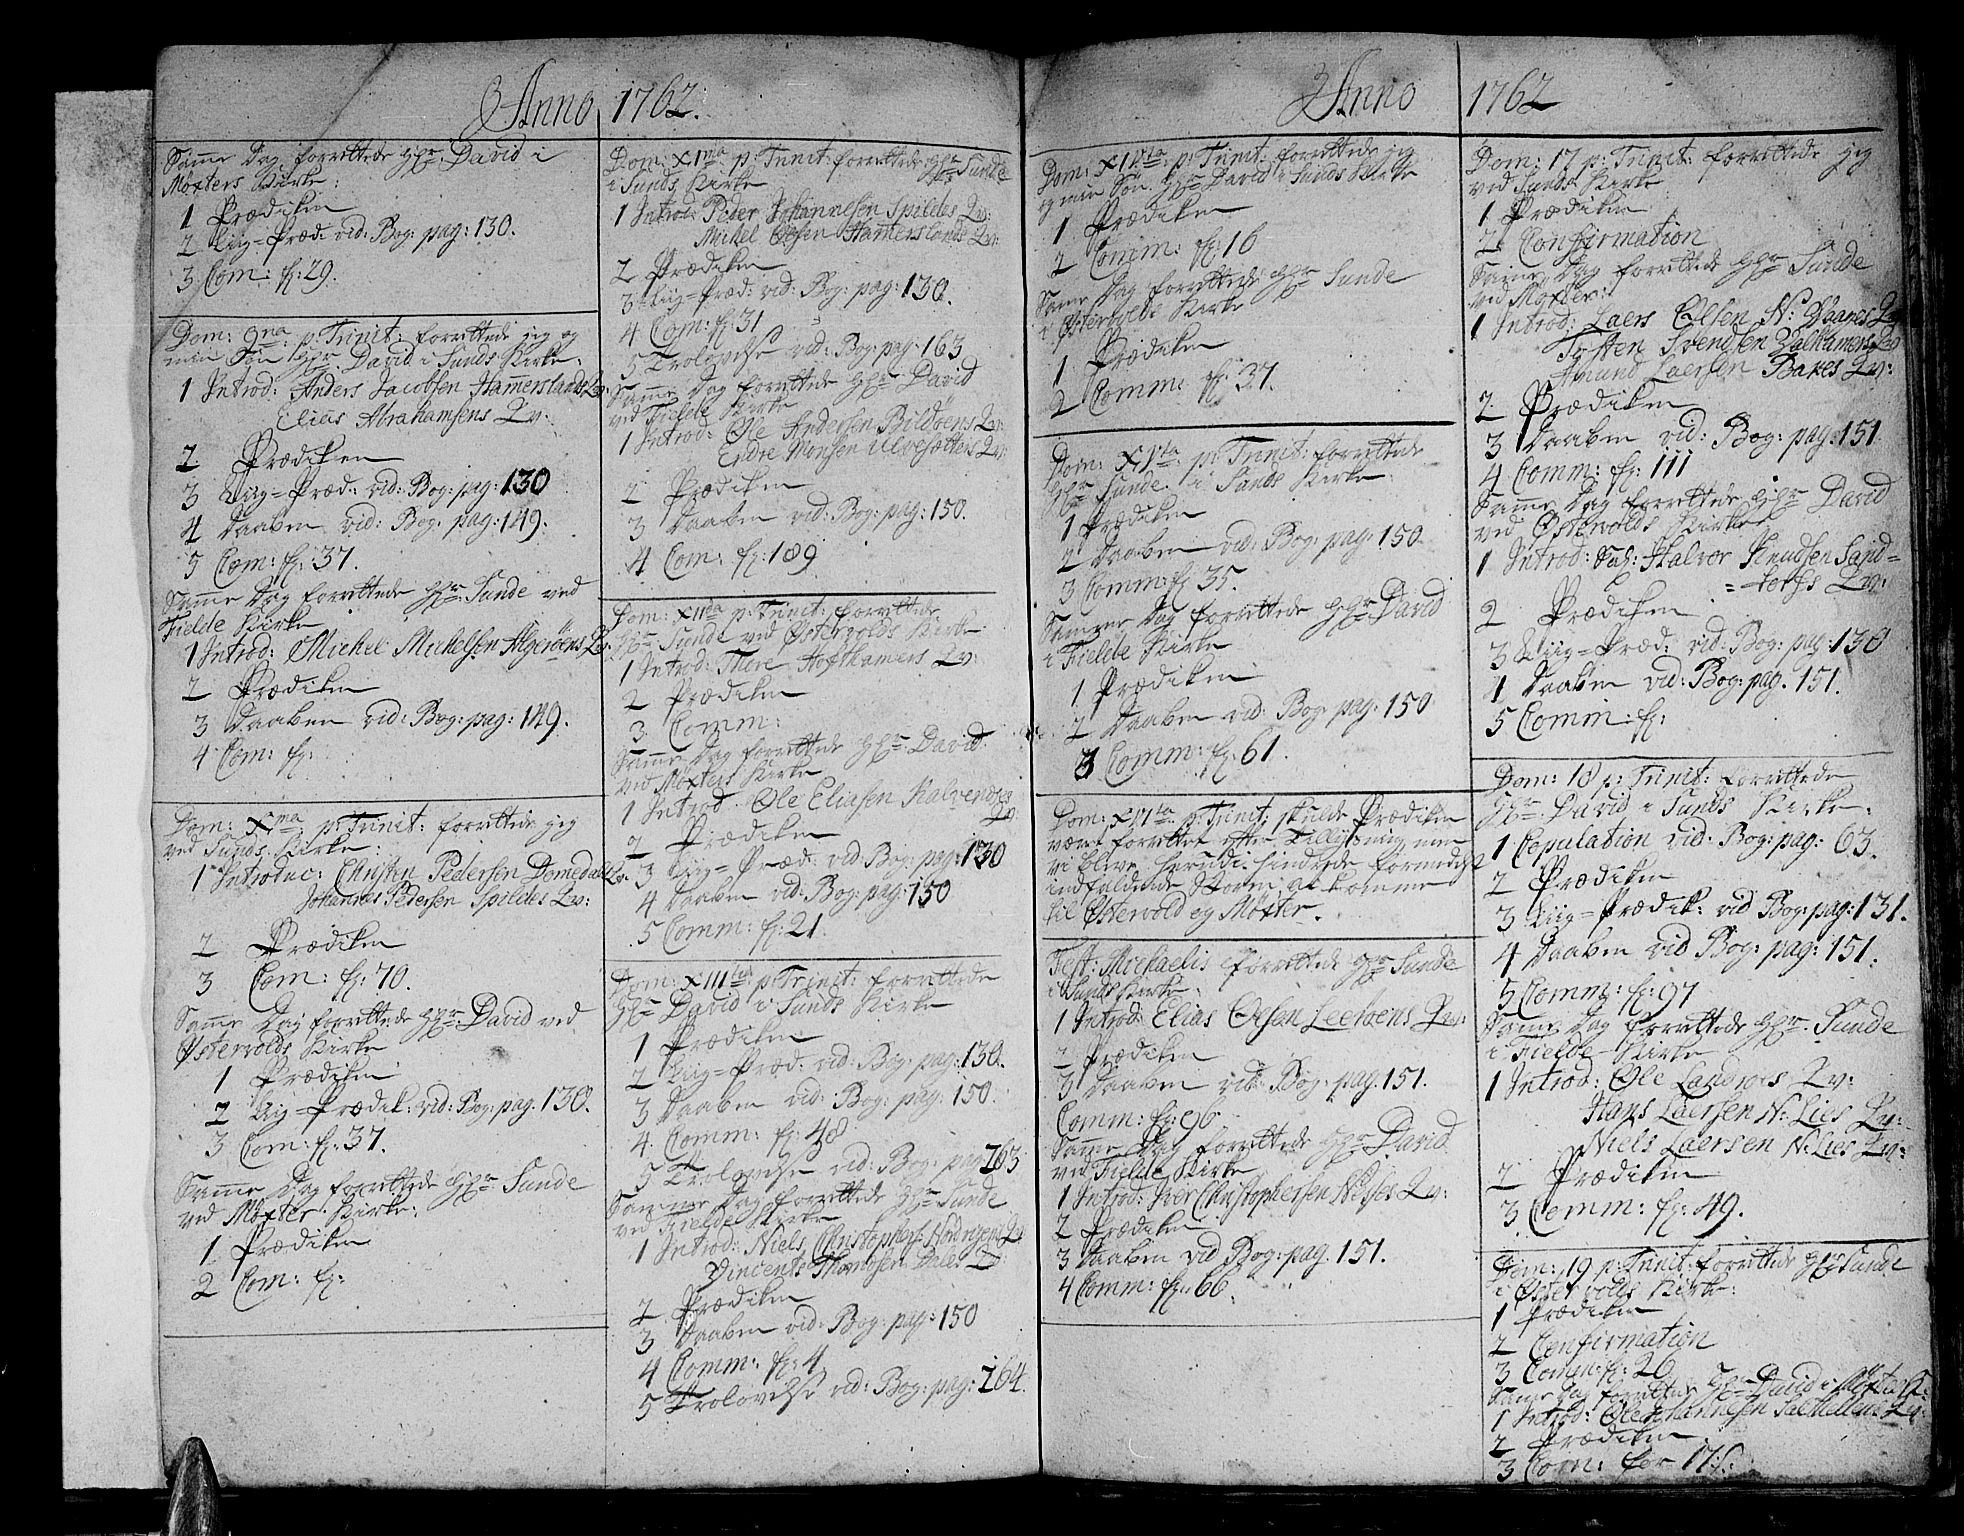 Anno 1762.
Samme Dag forrettede Hr. David i
Møxters Kirke:
1 Prædiken
2 Liig=Præd: vid: Bog: pag: 130.
3 Com: fl: 29.
Dom: 9na p: Trinit: forrettede jeg og
min Søn Hr. David i Sunds Kirke:
1 Introd: Anders Jacobsen Hammerslands Qv:
Elias Abrahamsens Qv:
2 Prædiken
3 Liig=Præd: vid: Bog: pag: 130
4 Daaben vid: Bog: pag: 149.
5 Com: fl: 37.
Samme Dag forrettede Hr. Sunde ved
Fielde Kirke
1 Introd: Michel Michelsen Algerøens Qv:
2 Prædiken
3 Daaben vid: Bog: pag: 149.
4 Com: fl:
Dom: Xma p: Trinit: forrettede jeg
ved Sunds Kirke:
1 Introduc: Christen Pedersen Domedals Qv:
Johannes Pedersen Spildes Qv:
2 Prædiken
3 Com: fl: 70.
Samme Dag forrettede Hr. David ved
Østervolds Kirke
1 Prædiken
2 Liig=Prædik: vid: Bog: pag. 130.
3 Com: fl: 37.
Samme Dag forrettede Hr. Sunde
ved Møxter Kirke:
1 Prædiken
2 Com: fl:
Dom: XIma p: Trinit: forrettede Hr. Sunde
i Sunds Kirke
1 Introd: Peder Johannesen Spildes Qv:
Michel Olsen Hamerslands Qv:
2 Prædiken
3 Liig=Præd: vid: Bog: pag: 130.
4 Com: fl: 31
5 Trolovelse vid: Bog: pag: 163
Samme Dag forrettede Hr. David
ved Fielde Kirke
1 Introd: Ole Andersen Bildøens Qv:
Endre Monsen Ulvesætters Qv:
2 Prædiken
3 Daaben vid: Bog: pag: 150.
4 Com: fl: 189
Dom: XIIda p: Trinit: forrettede
Hr. Sunde ved Østervolds Kirke
1 Introd: Thore Hofthamers Qv:
2 Prædiken
3 Comm:
Samme Dag forrettede Hr. David
ved Møxters Kirke
1 Introd. Ole Eliasen Kalvenæses
Qv:
2 Prædiken
3 Liig=Præd: vid Bog: pag: 130
4 Daaben vid: Bog: pag: 150
5 Comm: fl: 21.
Dom: XIIItia p: Trinit: forrettede
Hr. David i Sunds Kirke
1 Prædiken
2 Liig=Præd: vid: Bog: pag: 130.
3 Daaben vid: Bog: pag: 150.
4 Comm: fl: 48
5 Trolovelse vid: Bog: pag 163
Samme Dag forrettede Hr. Sunde
ved Fielde Kirke
1 Introd: Niels Christophers: Qv:
Vincents Thomæsen Dales Qv:
2 Prædiken
3 Daaben vid: Bog: pag: 150
4 Comm: fl: 4
5 Trolovelse vid: Bog: pag: 164.
Anno 1762
Dom: XIVta p: Trinit: forrettede jeg
og min Søn Hr. David i Sunds Kirke
1 Prædiken
2 Comm: fl: 16
Samme Dag forrettede Hr. Sunde
i Østervolds Kirke
1 Prædiken
2 Comm: fl: 37.
Dom: XVta p: Trinit: forrettede
Hr. Sunde i Sunds Kirke
1 Prædiken
2 Daaben vid: Bog: pag: 150.
3 Comm: fl: 35.
Samme Dag forrettede Hr. David
i Fielde Kirke
1 Prædiken
2 Daaben vid: Bog: pag: 150
3 Comm: fl: 61.
Dom: XVIta p: Trinit: skulde Prædiken
været forrettet efter Tillysning, men
vi bleve hindrede formedelst
indfaldende Storm at komme
til Østervold og Møxter.
Fest: Michaelis forrettede Hr. Sunde
i Sunds Kirke:
1 Introd: Elias Olsen Leeroens Qv:
2 Prædiken
3 Daaben vid: Bog: pag: 151.
Comm: fl: 96
Samme Dag forrettede Hr. David
ved Fielde Kirke
1 Introd: Iver Christophersen Neses Qv:
2 Prædiken
3 Daaben vid Bog: pag: 151.
4 Comm: fl: 66.
Dom: 17 p: Trinit: forrettede jeg
ved Sunds Kirke
1 Prædiken
2 Confirmation
Samme Dag forrettede Hr. Sunde
ved Møxter:
1 Introd: Laers Olsen N: Vaages Qv
Tosten Svendsen Valhamers Qv
Amund Laersen Bakes Qv:
2 Prædiken
3 Daaben vid: Bog: pag: 151
4 Comm: fl: 111
Samme Dag forrettede Hr. David
ved Østervolds Kirke
1 Introd: Sal: Halvor Knudsen Sand=
=torfs Qv:
2 Prædiken
3 Liig=Præd: vid: Bog: pag 130
4 Daaben vid: Bog: pag. 151.
5 Comm: fl:
Dom: 18 p: Trinit: forrettede
Hr. David i Sunds Kirke.
1 Copulation vid: Bog: pag: 63.
2 Prædiken
3 Liig=Prædik: vid Bog: pag: 131.
4 Daaben vid Bog: pag: 151.
5 Comm: fl: 97
Samme Dag forrettede Hr. Sunde
i Fielde Kirke
1 Introd: Ole Landroes Qv:
Hans Laersen N: Lies Qv:
Niels Laersen N: Lies Qv:
2 Prædiken
3 Comm: fl: 49.
Dom: 19 p: Trinit: forrettede Hr. Sunde
i Østervolds Kirke:
1 Prædiken
2 Confirmation
3 Comm: fl: 26
Samme Dag forrettede Hr. David i Møxter K:
1 Introd: Ole Johannesen Qv:
2 Prædiken
3 Com: for 17